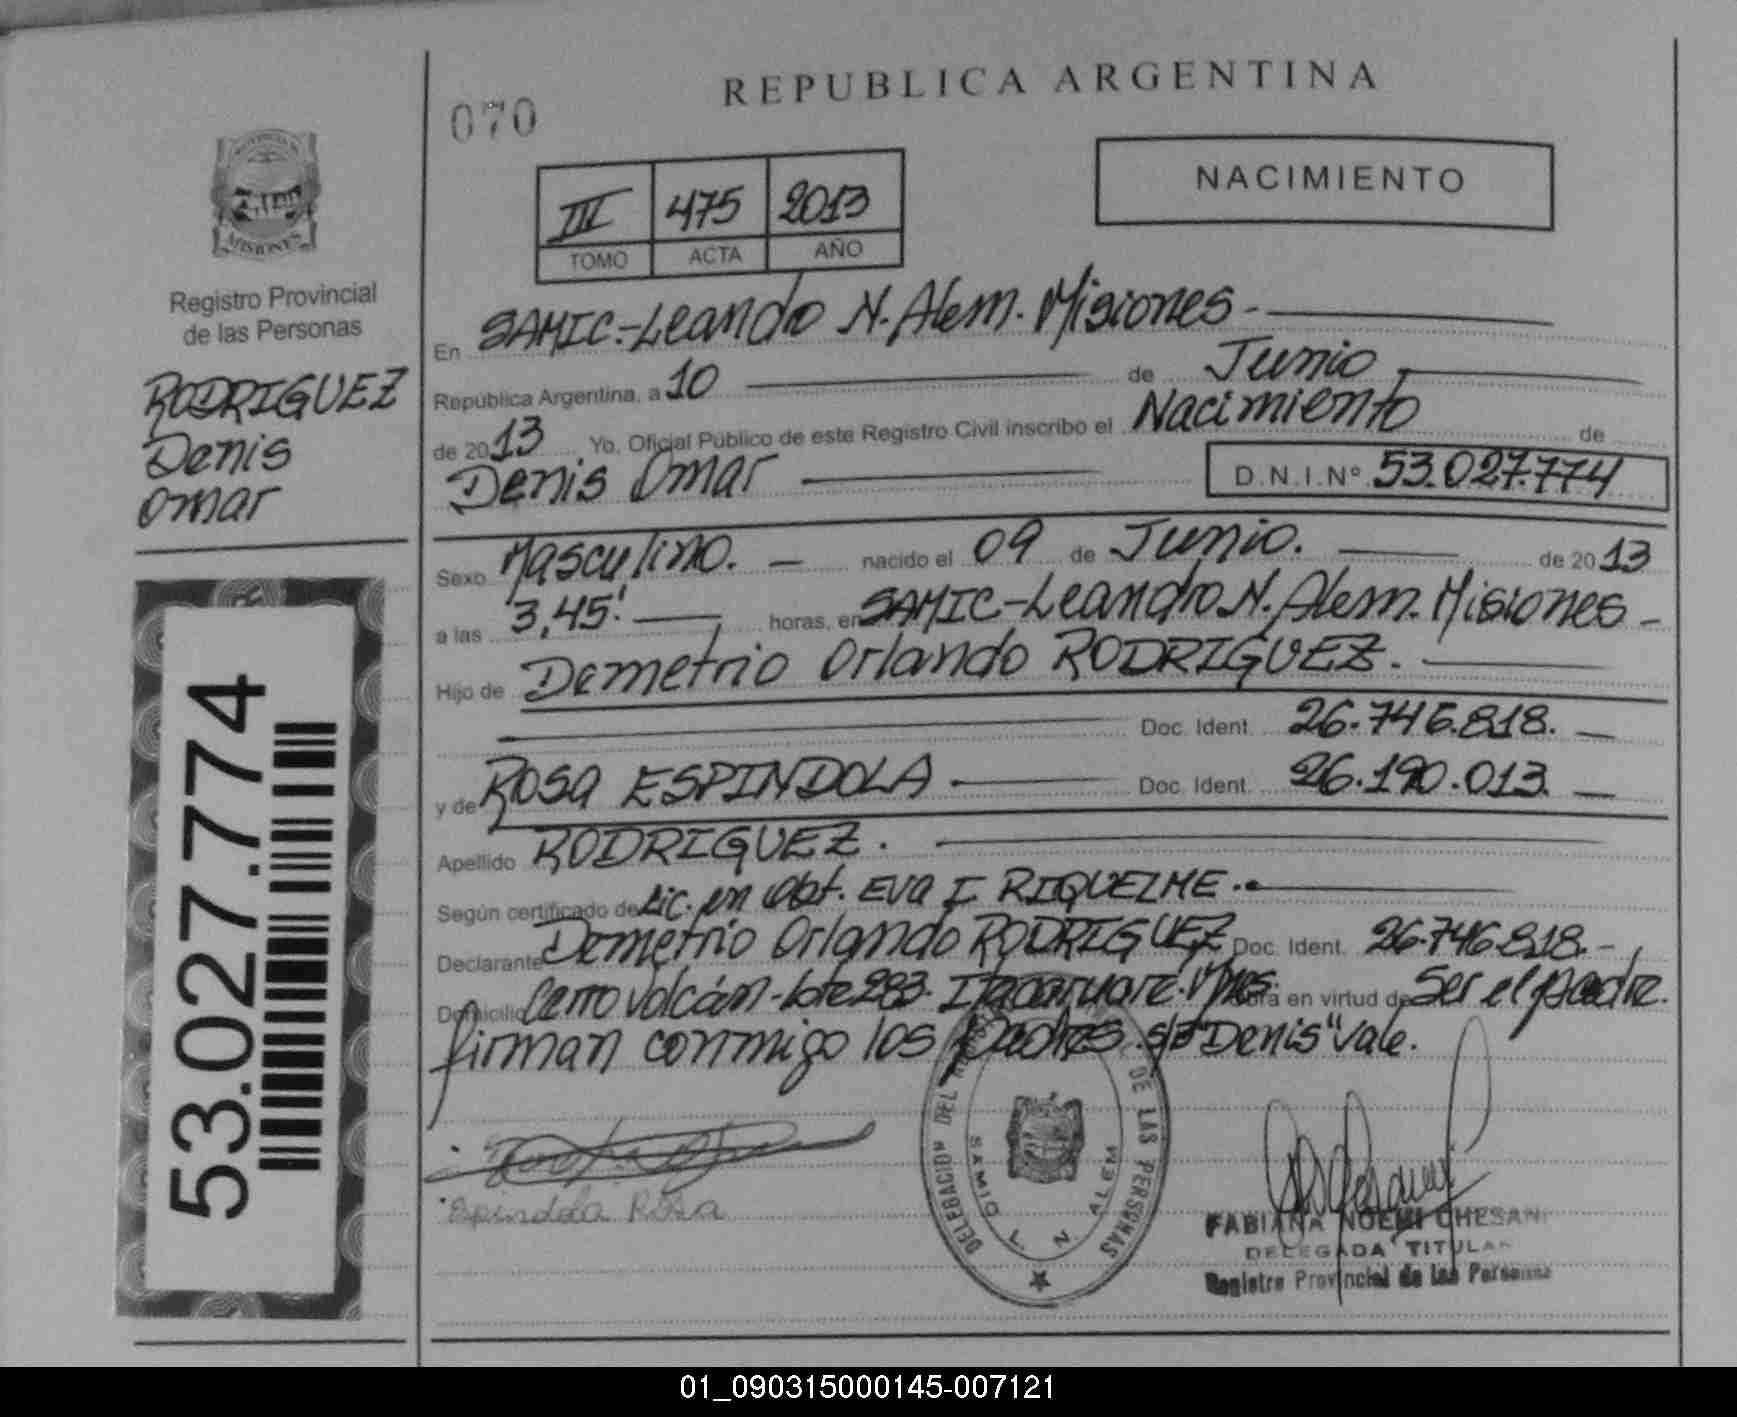 REPUBLICA ARGENTINA
070
NACIMIENTO
III 475 2013
TOMO ACTA AÑO
PROVINCIA DE
MISIONES
Registro Provincial
de las Personas
RODRIGUEZ
Denis
Omar
53.027.774
En SAMIC-Leandro N. Alem. Misiones-
República Argentina, a 10 de Junio
de 2013 Yo, Oficial Público de este Registro Civil inscribo el Nacimiento de
Denis Omar D.N.I.Nº 53.027.774
Sexo Masculino. nacido el 09 de Junio. de 2013
a las 3,45' horas, en SAMIC-Leandro N. Alem. Misiones-
Hijo de Demetrio Orlando RODRIGUEZ.
Doc. Ident. 26.746.818.
y de Rosa ESPINDOLA Doc. Ident. 26.190.013.
Apellido RODRIGUEZ.
Según certificado de Lic. en Obt. Eva I RIQUELME.
Declarante Demetrio Orlando RODRIGUEZ Doc. Ident. 26.746.818.-
Domicilio Cerro Volcán-lote 283. Itacaruaré. Mnes. Obra en virtud de Ser el padre.
firman conmigo los padres. s/r "Denis" Vale.
Espindola Rosa
DELEGACION DEL DE LAS PERSONAS
SAMIC L. N. ALEM
FABIANA NOEMI CHESANI
DELEGADA TITULAR
Registro Provincial de las Personas
01_090315000145-007121